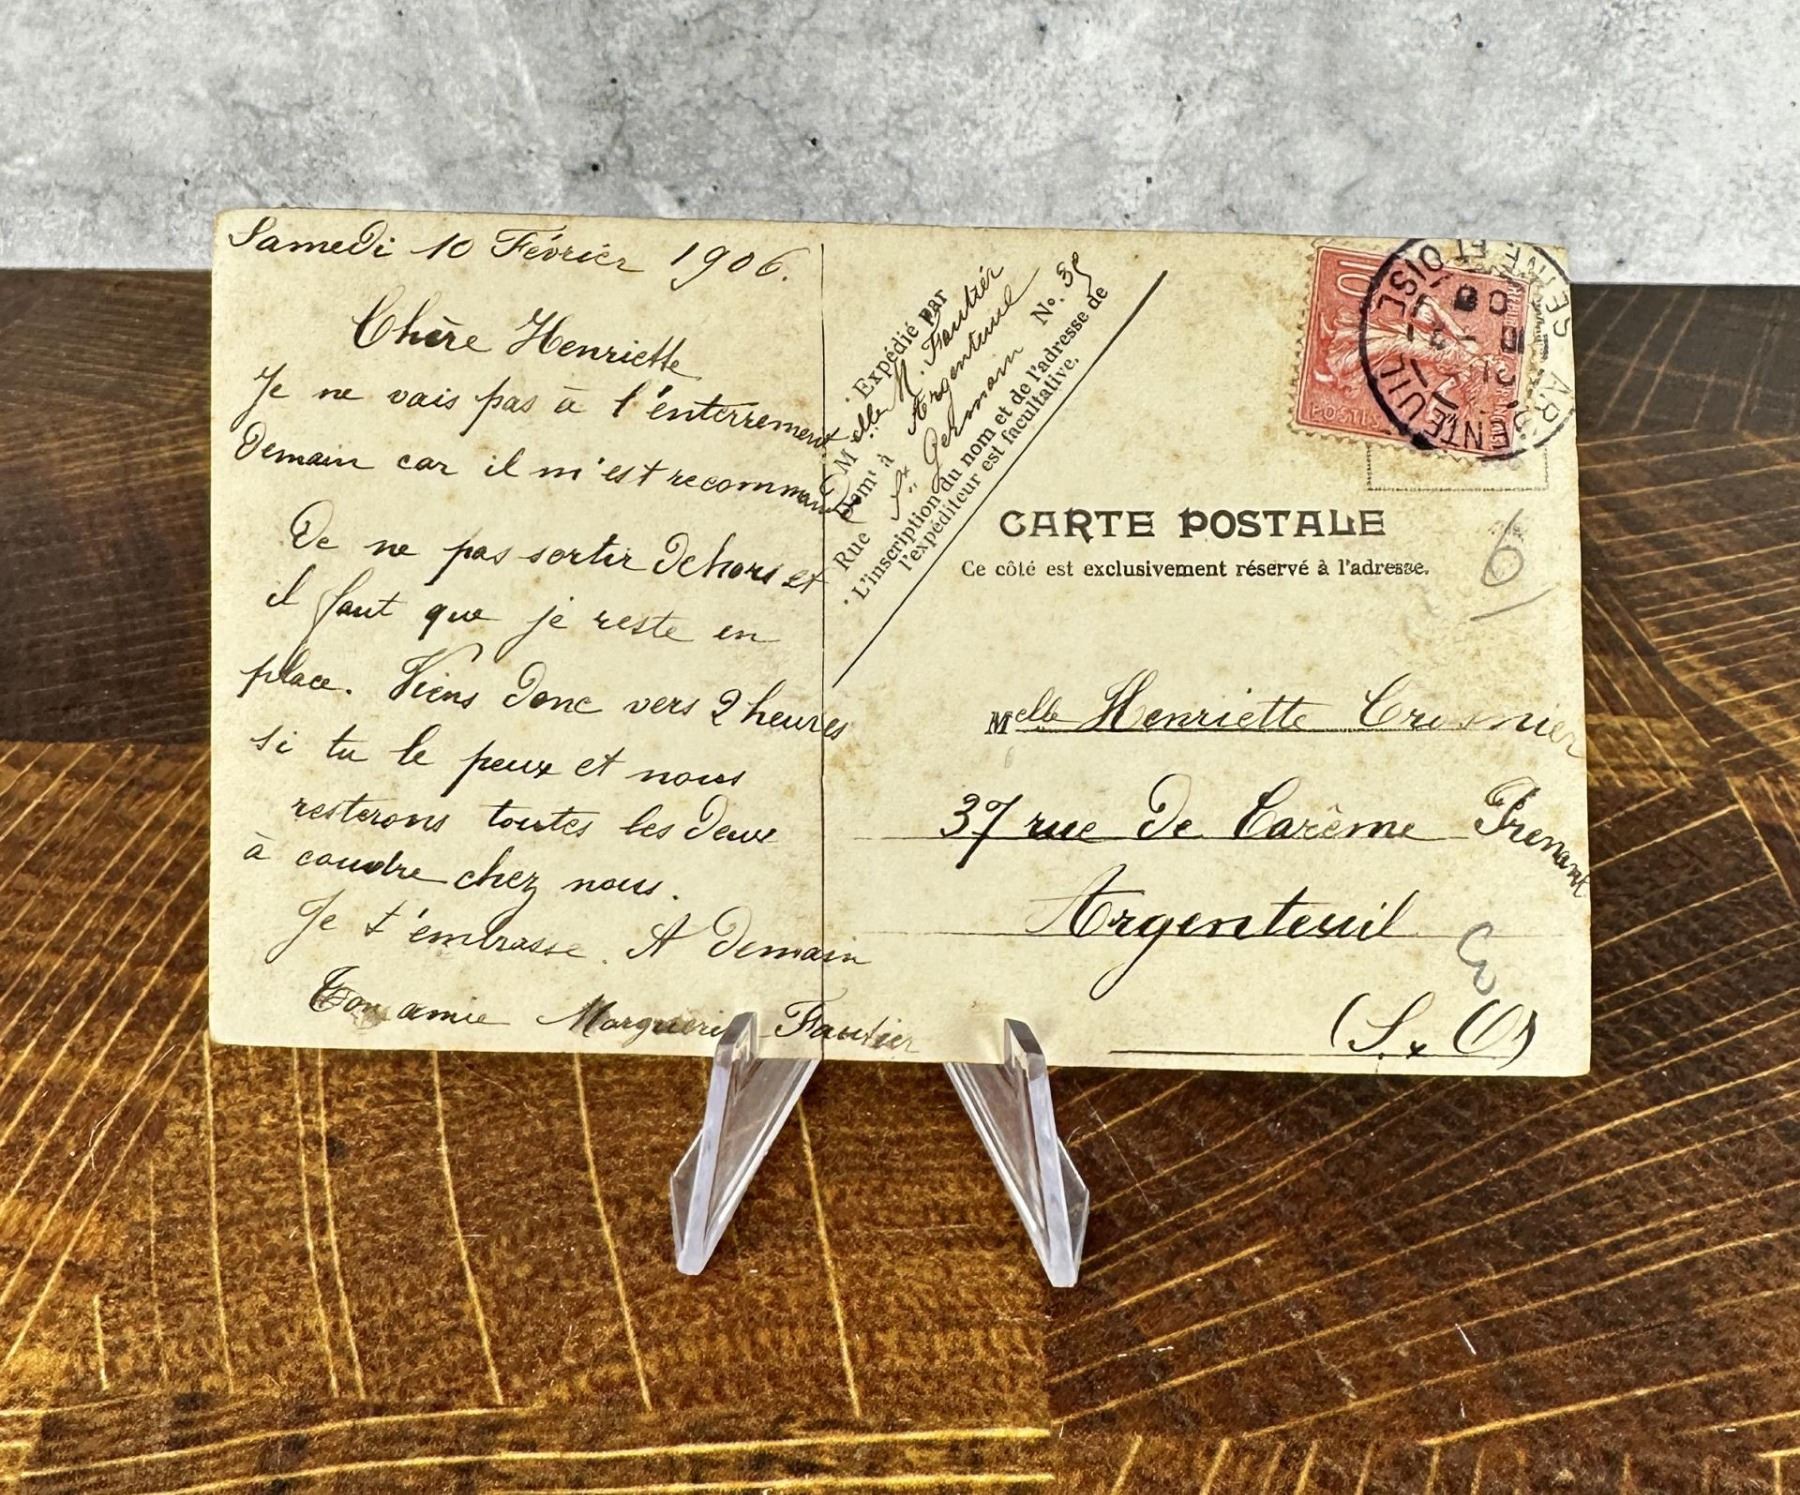 Samedi 10 Février 1906.
Chère Henriette
Je ne vais pas à l'enterrement
Demain car il m'est recommandé
De ne pas sortir Dehors et
il faut que je reste en
place. Viens Donc vers 2 heures
si tu le peux et nous
resterons toutes les Deux
à coudre chez nous.
Je t'embrasse. A Demain
Ton amie Marguerite Fautier
Expédié par
Melle M. Fautier
Demt à Argenteuil
Rue St Germain No. 39
L'inscription du nom et de l'adresse de
l'expéditeur est facultative.
10
POSTES
ARGENTEUIL
SEINE ET OISE
CARTE POSTALE
Ce côté est exclusivement réservé à l'adresse.
6
Melle Henriette Crosnier
37 rue De Carême Prenant
Argenteuil
(S. x O)